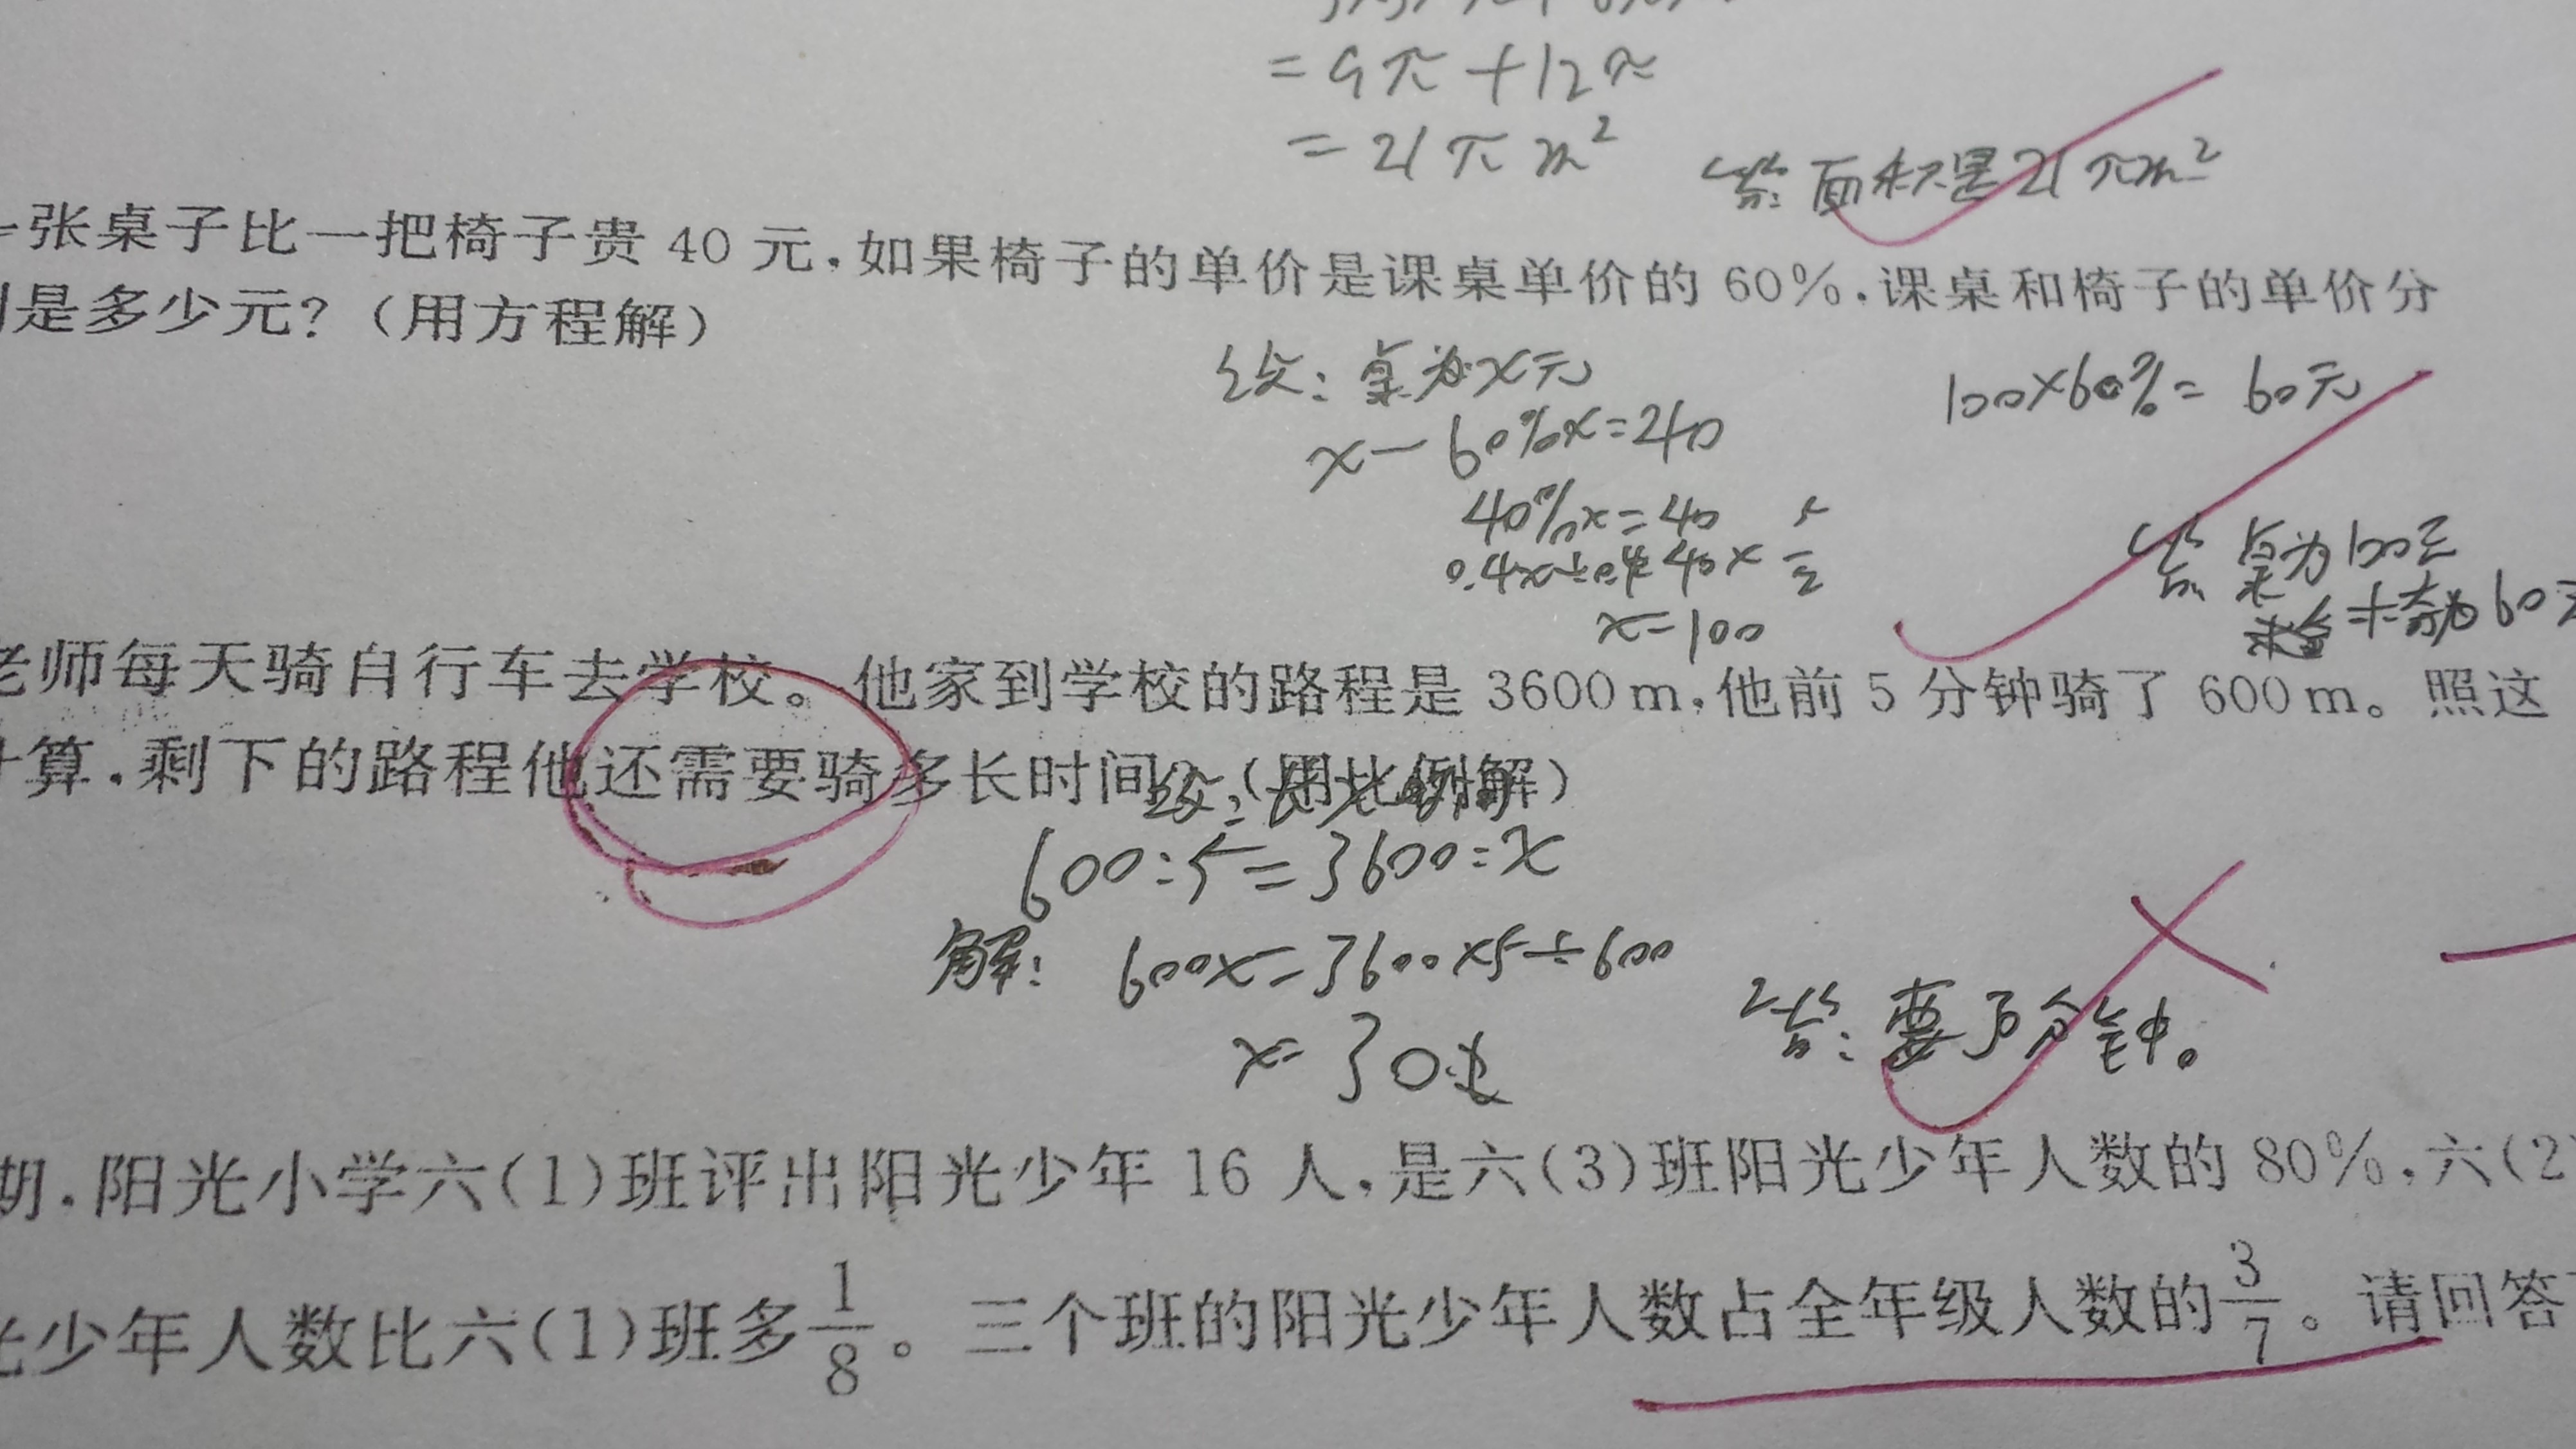 =9π+12π
=21πm²
答:面积是21πm²
张桌子比一把椅子贵 40 元,如果椅子的单价是课桌单价的 60%,课桌和椅子的单价分
是多少元?(用方程解)
设:桌为x元
100×60%=60元
x-60%x=40
40%x=40
x=100
答:桌为100元
椅为60元
老师每天骑自行车去学校。他家到学校的路程是 3600 m,他前 5 分钟骑了 600 m。照这
算,剩下的路程他还需要骑多长时间?(用比例解)
600:5=3600:x
解:600x=3600×5÷600
x=30
答:要30分钟。
期,阳光小学六(1)班评出阳光少年 16 人,是六(3)班阳光少年人数的 80%,六(2
少年人数比六(1)班多1/8。三个班的阳光少年人数占全年级人数的3/7。请回答